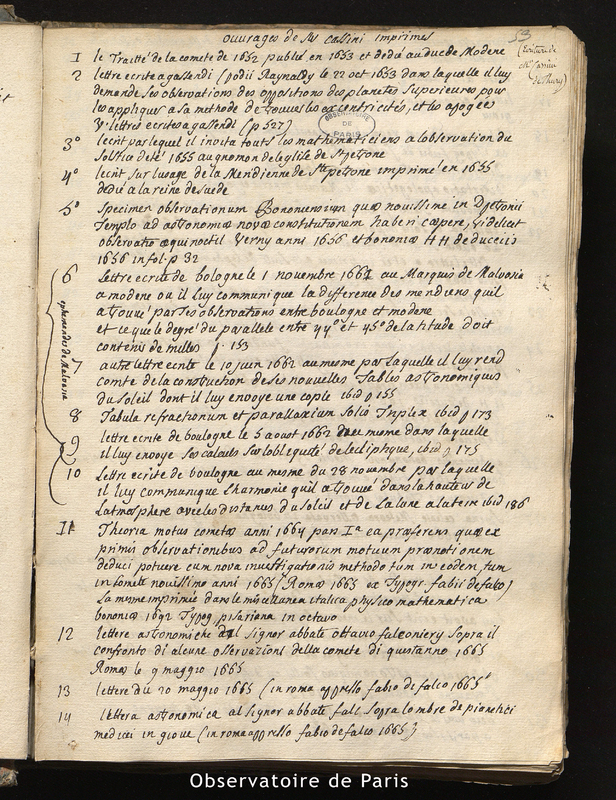 ouvrages de Mr Cassini imprimes
53
(Ecriture de
Mr Cassini
de Thury)
1 le Traitté de la comete de 1652 publié en 1653 et dedié au duc de Modene
2 lettre ecrite a gassendi (podii Raynaldy le 22 oct 1653 dans laquelle il luy
demande ses observations des oppositions des planetes superieures pour
les appliquer a sa methode de trouver les excentricités, et les apogée
V. lettres ecrites a gassendi (p 527)
OBSERVATOIRE
DE
PARIS
3° lecrit par lequel il invita touts les mathematiciens a lobservation du
solstice deté 1655 au gnomon de leglise de St petrone
4° lecrit sur lusage de la Meridienne de St petrone imprimé en 1655
dedié a la reine de suede
5° Specimen observationum Bononiensium quæ novissime in D. petronii
Templo ad astronomiæ novæ constitutionem haberi cæpere, videlicet
observatio æquinoctii verny anni 1656 et bononiæ HH de ducciis
1656 infol. p 32
6 Lettre ecrite de bologne le 1 novembre 1661 au Marquis de Malvasia
a modene ou il luy communique la difference des meridiens quil
a trouvé par ses observations entre boulogne et modene
et ce que le degre du parallele entre 44° et 45° de latitude doit
contenir de milles p. 153
ephemerides de Malvasia
7 autre lettre ecrite le 10 juin 1662 au mesme par laquelle il luy rend
comte de la construction de ses nouvelles Tables astronomiques
du soleil dont il luy envoye une copie ibid p 155
8 Tabula refractionum et parallaxium solis Triplex ibid p 173
9 lettre ecrite de boulogne le 5 aoust 1662 au mesme dans laquelle
il luy envoye ses calculs sur lobliquité de lecliptique, ibid p 175
10 Lettre ecrite de boulogne au mesme du 28 novembre par laquelle
il luy communique l'harmonie quil a trouvée dans la hauteur de
Latmosphere avec les distances du soleil et de La lune a la terre ibid 186
11 Theoria motus cometæ anni 1664 pars Ia ea præferens quæ ex
primis observationibus ad futurorum motuum prænotionem
deduci potuere cum nova investigationis methodo tum in eodem, tum
in comete novissimo anni 1665 (Romæ 1665 ex Typogr. fabii de falco)
La mesme imprimée dans le miscellanea italica physico mathematica
bononiæ 1692 Typog. pisariana in octavo
12 lettere astronomiche al signor abbate ottavio falconiery sopra il
confronto di alcune osservazioni della comete di questanno 1665
Romæ le 9 maggio 1665
13 lettere du 20 maggio 1665 (in roma appresso fabio de falco 1665
14 lettera astronomica al signor abbate falc. sopra lombre de pianetici
medicei in giove (in roma appresso fabio de falco 1665)
Observatoire de Paris